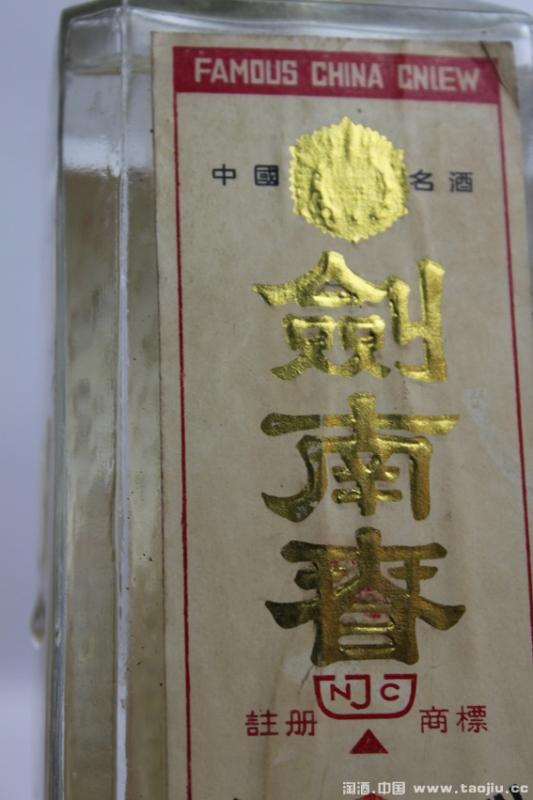 FAMOUS CHINA CNIEW
中國 名酒
劍南春
NJC
註册 商標
淘酒.中国 www.taojiu.cc